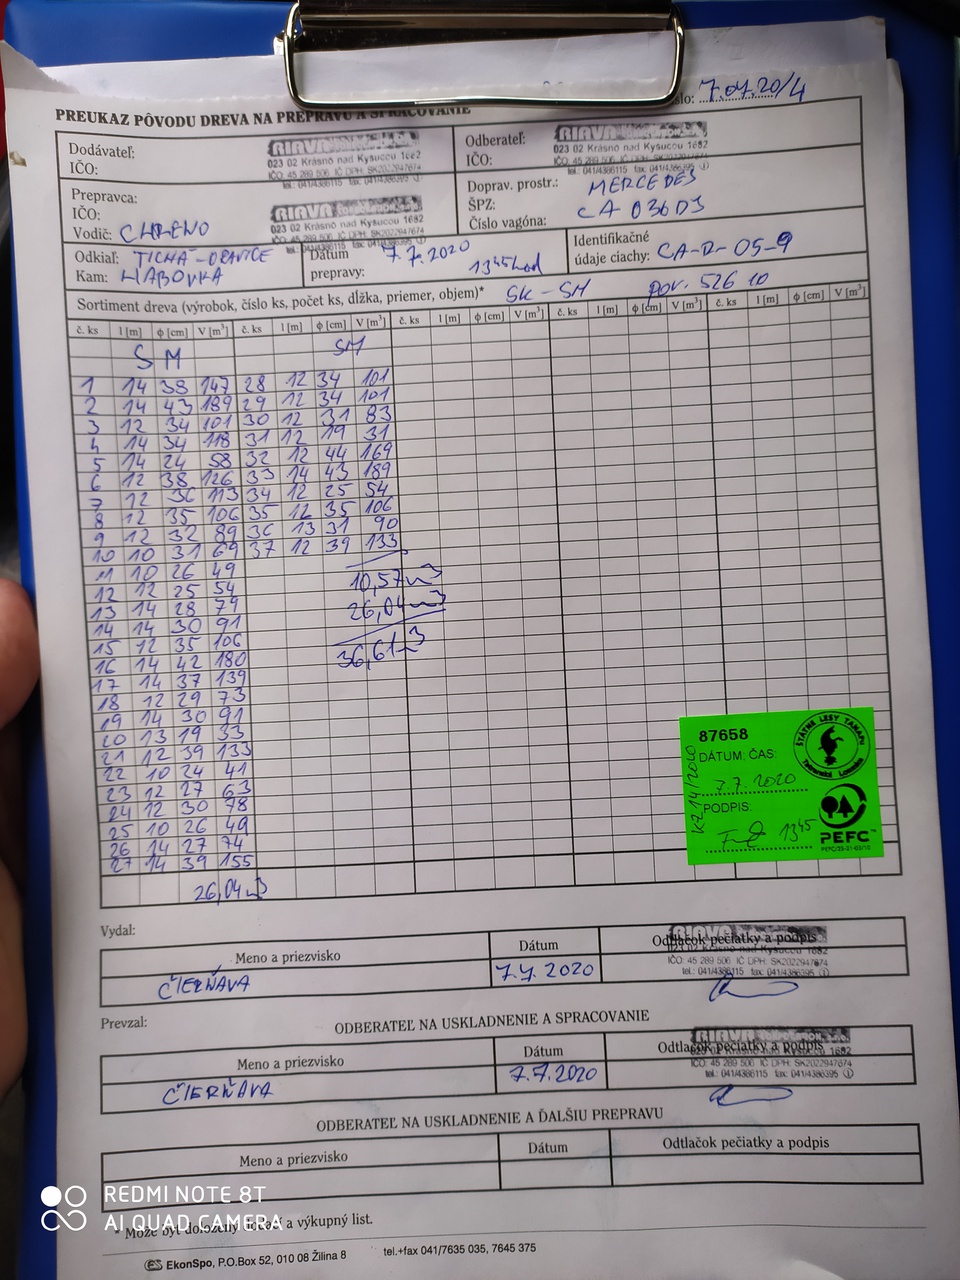 7.07.20/4
PREUKAZ PÔVODU DREVA NA PREPRAVU A SPRACOVANIE
Dodávateľ:
IČO:
RIAVA
023 02 Krásno nad Kysucou 1682
IČO: 45 289 506 IČ DPH: SK2022947674
tel.: 041/4386115 fax: 041/4386395
Odberateľ:
IČO:
RIAVA
023 02 Krásno nad Kysucou 1682
IČO: 45 289 506 IČ DPH: SK2022947674
tel.: 041/4386115 fax: 041/4386395
Prepravca:
IČO:
Vodič:
RIAVA
023 02 Krásno nad Kysucou 1682
IČO: 45 289 506 IČ DPH: SK2022947674
tel.: 041/4386115 fax: 041/4386395
Doprav. prostr.: MERCEDES
ŠPZ: CA 036DJ
Číslo vagóna:
Odkiaľ: TICHÁ-ORAVICE
Kam: HABOVKA
Dátum prepravy: 7.7.2020
13⁴⁵hod
Identifikačné
údaje ciachy: CA-D-05-9
Sortiment dreva (výrobok, číslo ks, počet ks, dĺžka, priemer, objem)* SK-SM pov. 526 10
č. ks l [m] ϕ [cm] V [m³] č. ks l [m] ϕ [cm] V [m³] č. ks l [m] ϕ [cm] V [m³] č. ks l [m] ϕ [cm] V [m³] č. ks l [m] ϕ [cm] V [m³]
SM SM
1 14 38 147 28 12 34 101
2 14 43 189 29 12 34 101
3 12 34 101 30 12 31 83
4 14 34 118 31 12 19 31
5 14 24 58 32 12 44 169
6 12 38 126 33 14 43 189
7 12 36 113 34 12 25 54
8 12 35 106 35 12 35 106
9 12 32 89 36 13 31 90
10 10 31 69 37 12 39 133
11 10 26 49
12 12 25 54 10,57m3
13 14 28 79 26,04m3
14 14 30 91
15 12 35 106 36,61m3
16 14 42 180
17 14 37 139
18 12 29 73
19 14 30 91
20 13 19 33
21 12 39 133
22 10 24 41
23 12 27 63
24 12 30 78
25 10 26 49
26 14 27 74
27 14 39 155
26,04m3
87658
DÁTUM: ČAS:
7.7.2020
PODPIS:
13⁴⁵
KZ 14/2020
ŠTÁTNE LESY TANAPU
Tatranská Lomnica
PEFC™
Vydal:
Meno a priezvisko Dátum Odtlačok pečiatky a podpis
ČIERŇAVA 7.7.2020
RIAVA
023 02 Krásno nad Kysucou 1682
IČO: 45 289 506 IČ DPH: SK2022947674
tel.: 041/4386115 fax: 041/4386395
Prevzal:
ODBERATEĽ NA USKLADNENIE A SPRACOVANIE
Meno a priezvisko Dátum Odtlačok pečiatky a podpis
ČIERŇAVA 7.7.2020
RIAVA
023 02 Krásno nad Kysucou 1682
IČO: 45 289 506 IČ DPH: SK2022947674
tel.: 041/4386115 fax: 041/4386395
ODBERATEĽ NA USKLADNENIE A ĎALŠIU PREPRAVU
Meno a priezvisko Dátum Odtlačok pečiatky a podpis
* Môže byť doložený dodací a výkupný list.
EkonSpo, P.O.Box 52, 010 08 Žilina 8 tel.+fax 041/7635 035, 7645 375
REDMI NOTE 8T
AI QUAD CAMERA